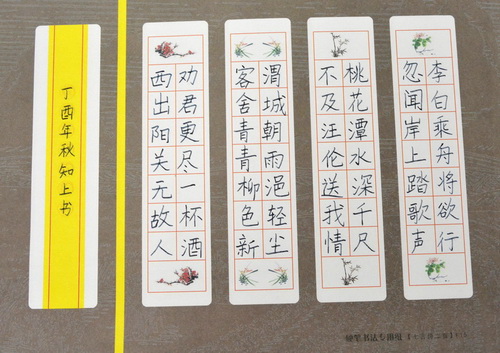 李白乘舟将欲行
忽闻岸上踏歌声
桃花潭水深千尺
不及汪伦送我情
渭城朝雨浥轻尘
客舍青青柳色新
劝君更尽一杯酒
西出阳关无故人
丁酉年秋知上书